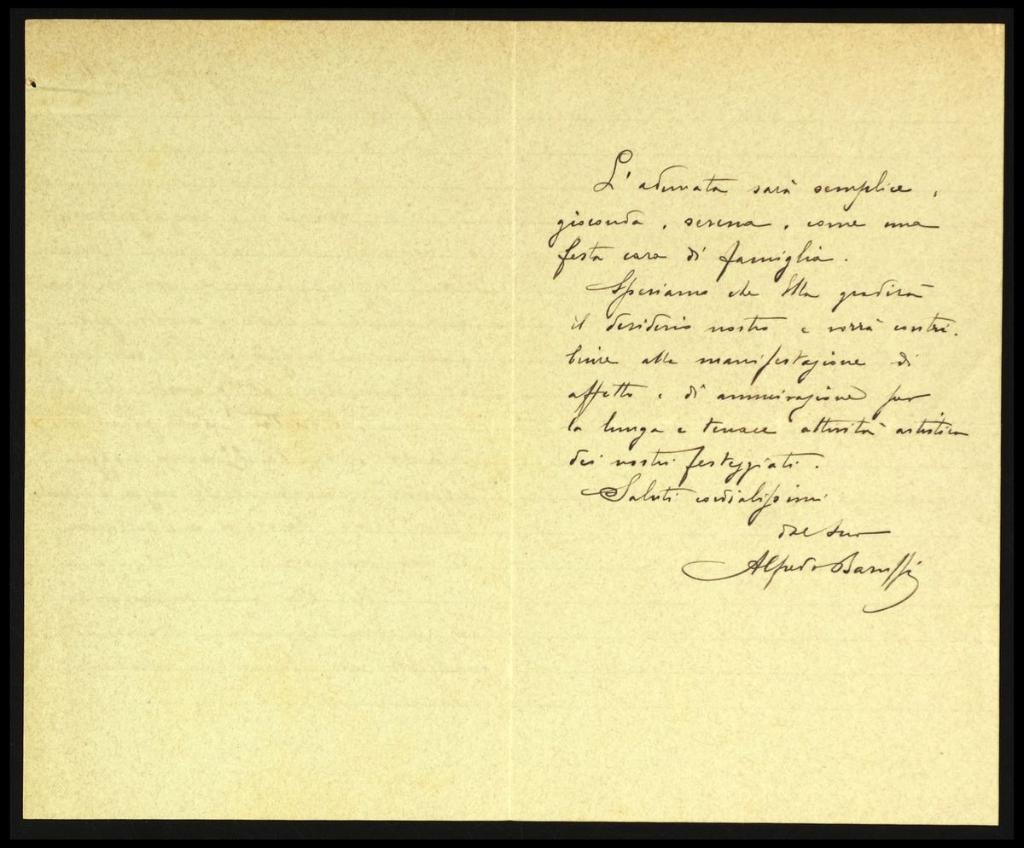 L'adunata sarà semplice,
gioconda, serena, come una
festa cara di famiglia.
Speriamo che Ella gradirà
il desiderio nostro e vorrà contri-
buire alla manifestazione di
affetto e di ammirazione per
la lunga e tenace attività artistica
dei nostri festeggiati.
Saluti cordialissimi
dal suo
Alfredo Baruffi